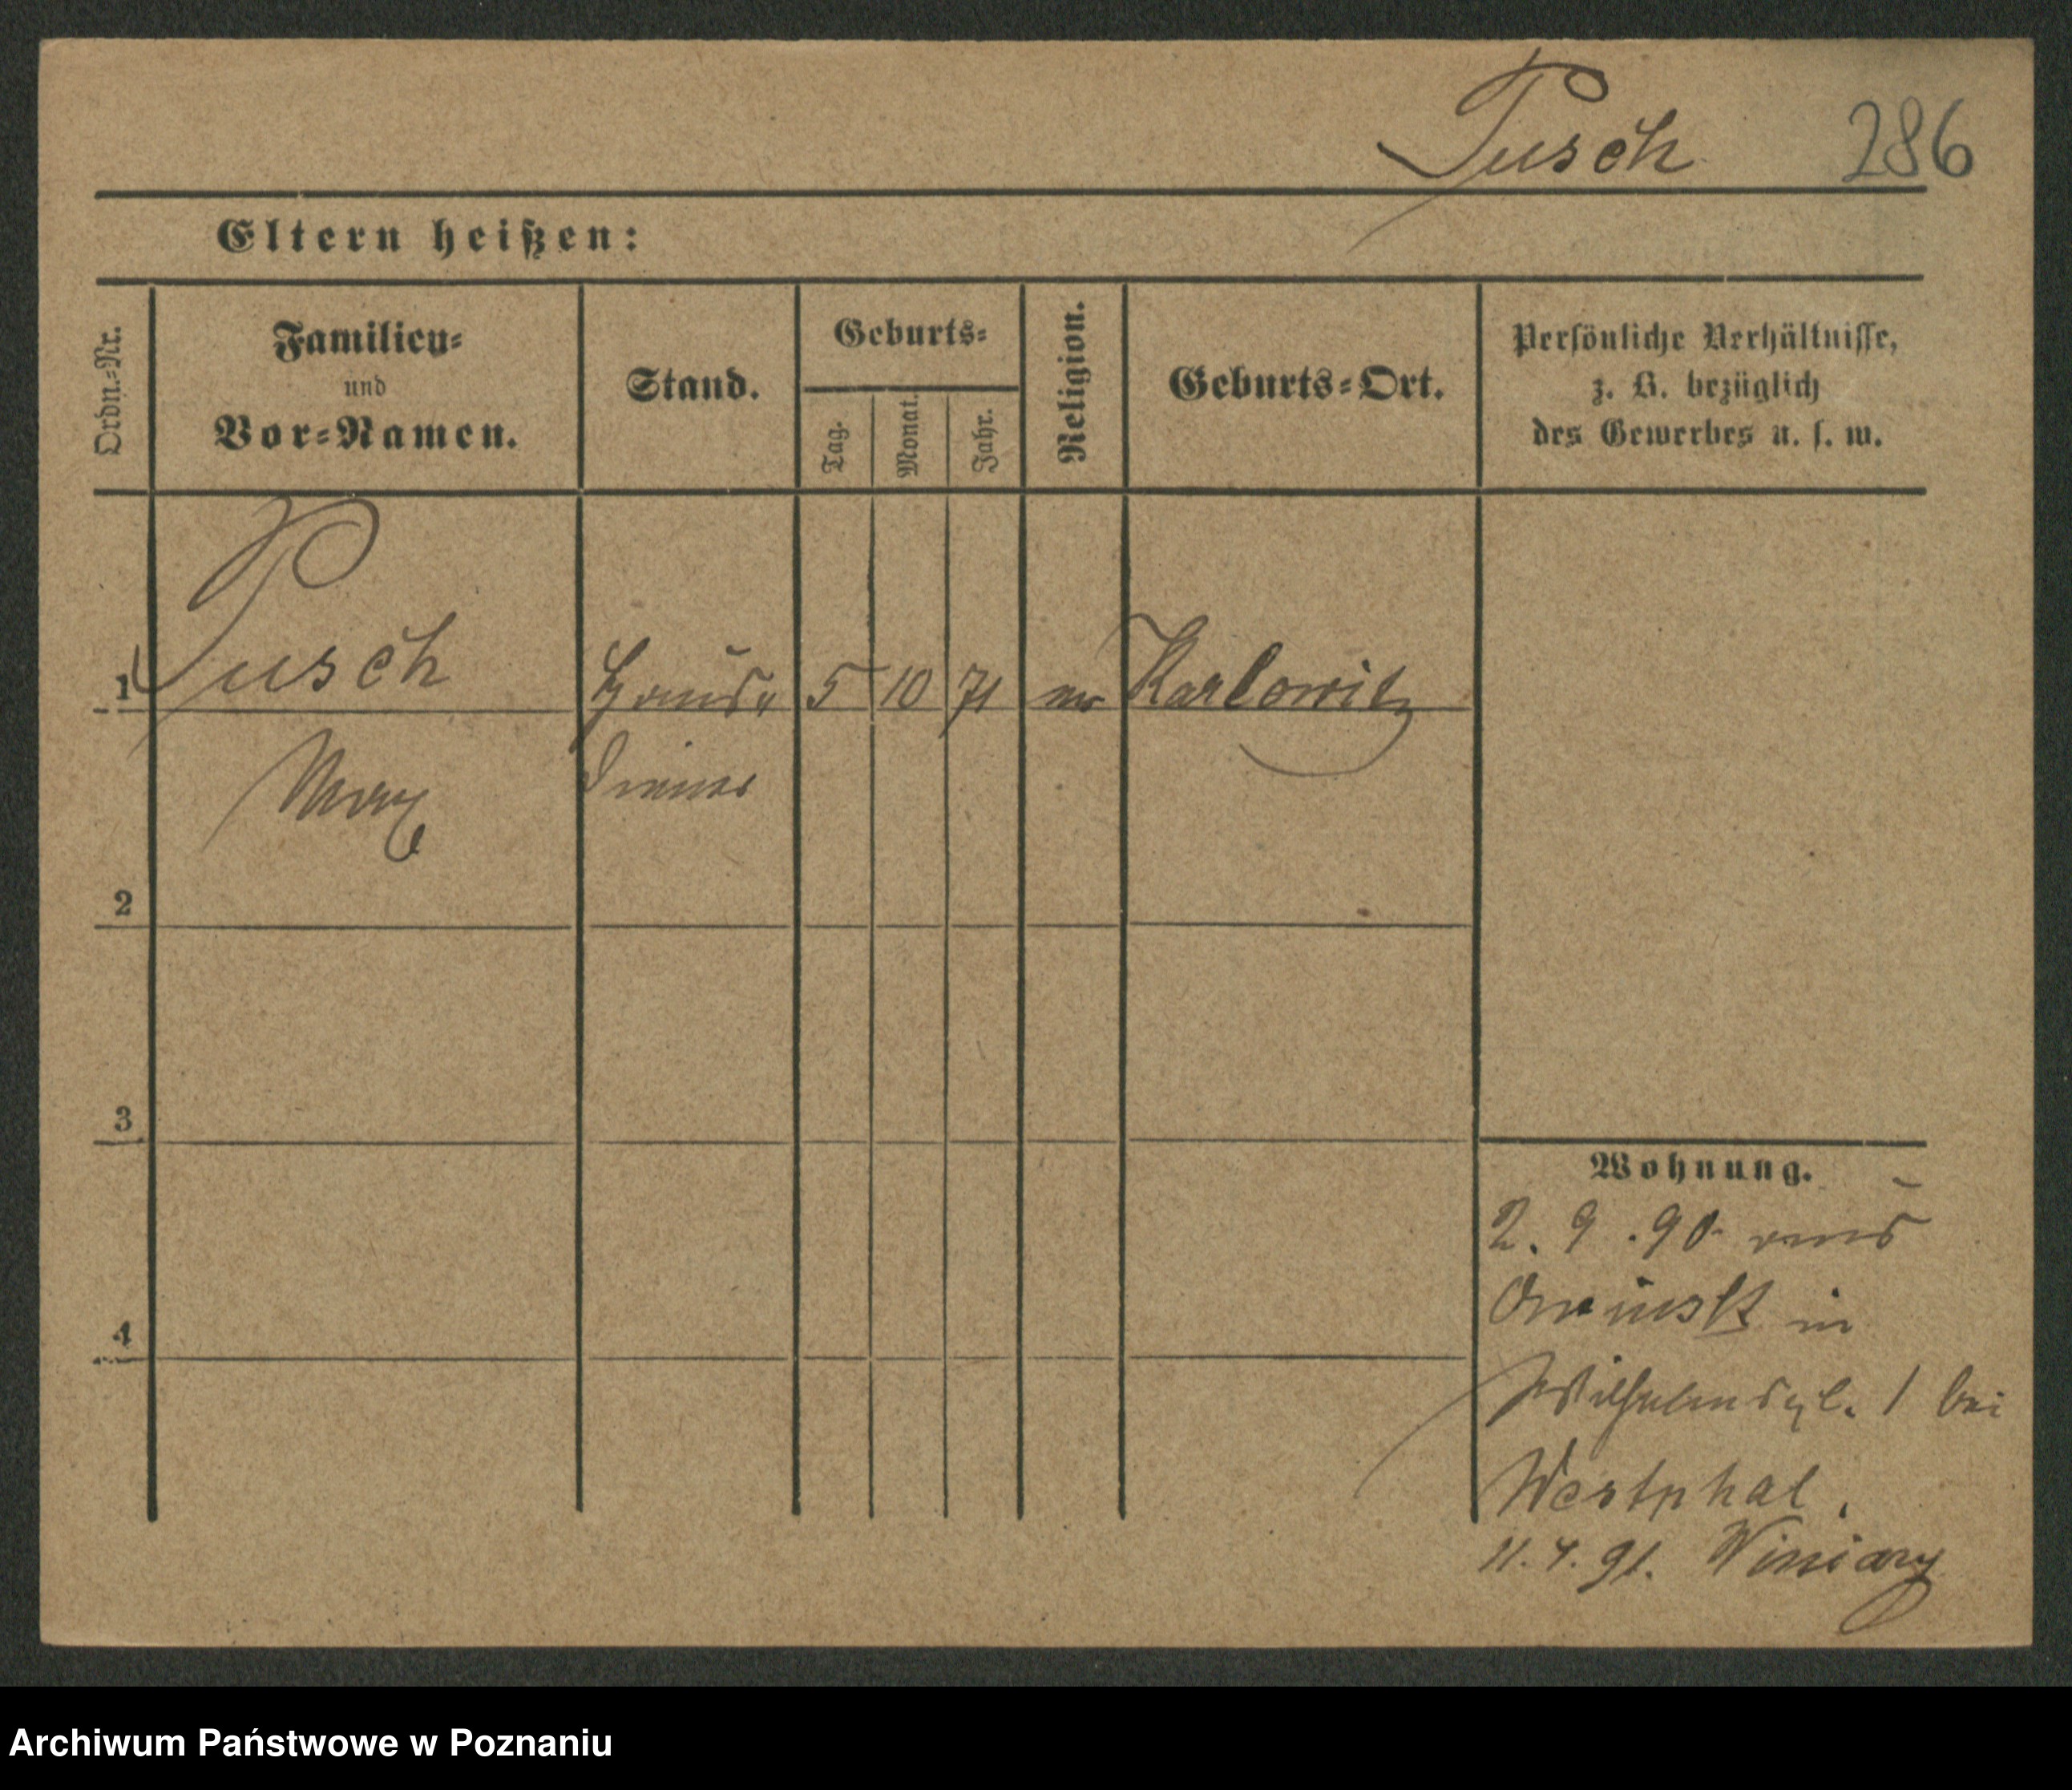 Pusch 286
Eltern heißen:
Ordn.-Nr.
Familien-
und
Vor-Namen.
Stand.
Geburts-
Tag.
Monat.
Jahr.
Religion.
Geburts-Ort.
Persönliche Verhältnisse,
z. B. bezüglich
des Gewerbes u. s. w.
1 Pusch Haus- 5 10 71 ev Karlowitz
Max diener
2
3
4
Wohnung.
2. 9. 90 aus
Owinsk in
Wilhelmspl. 1 bei
Westphal.
11. 4. 91. Winiary
Archiwum Państwowe w Poznaniu